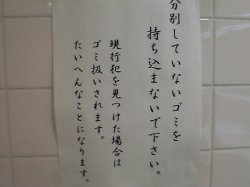 分別していないゴミを
持ち込まないで下さい。
現行犯を見つけた場合は
ゴミ扱いされます。
たいへんなことになります。